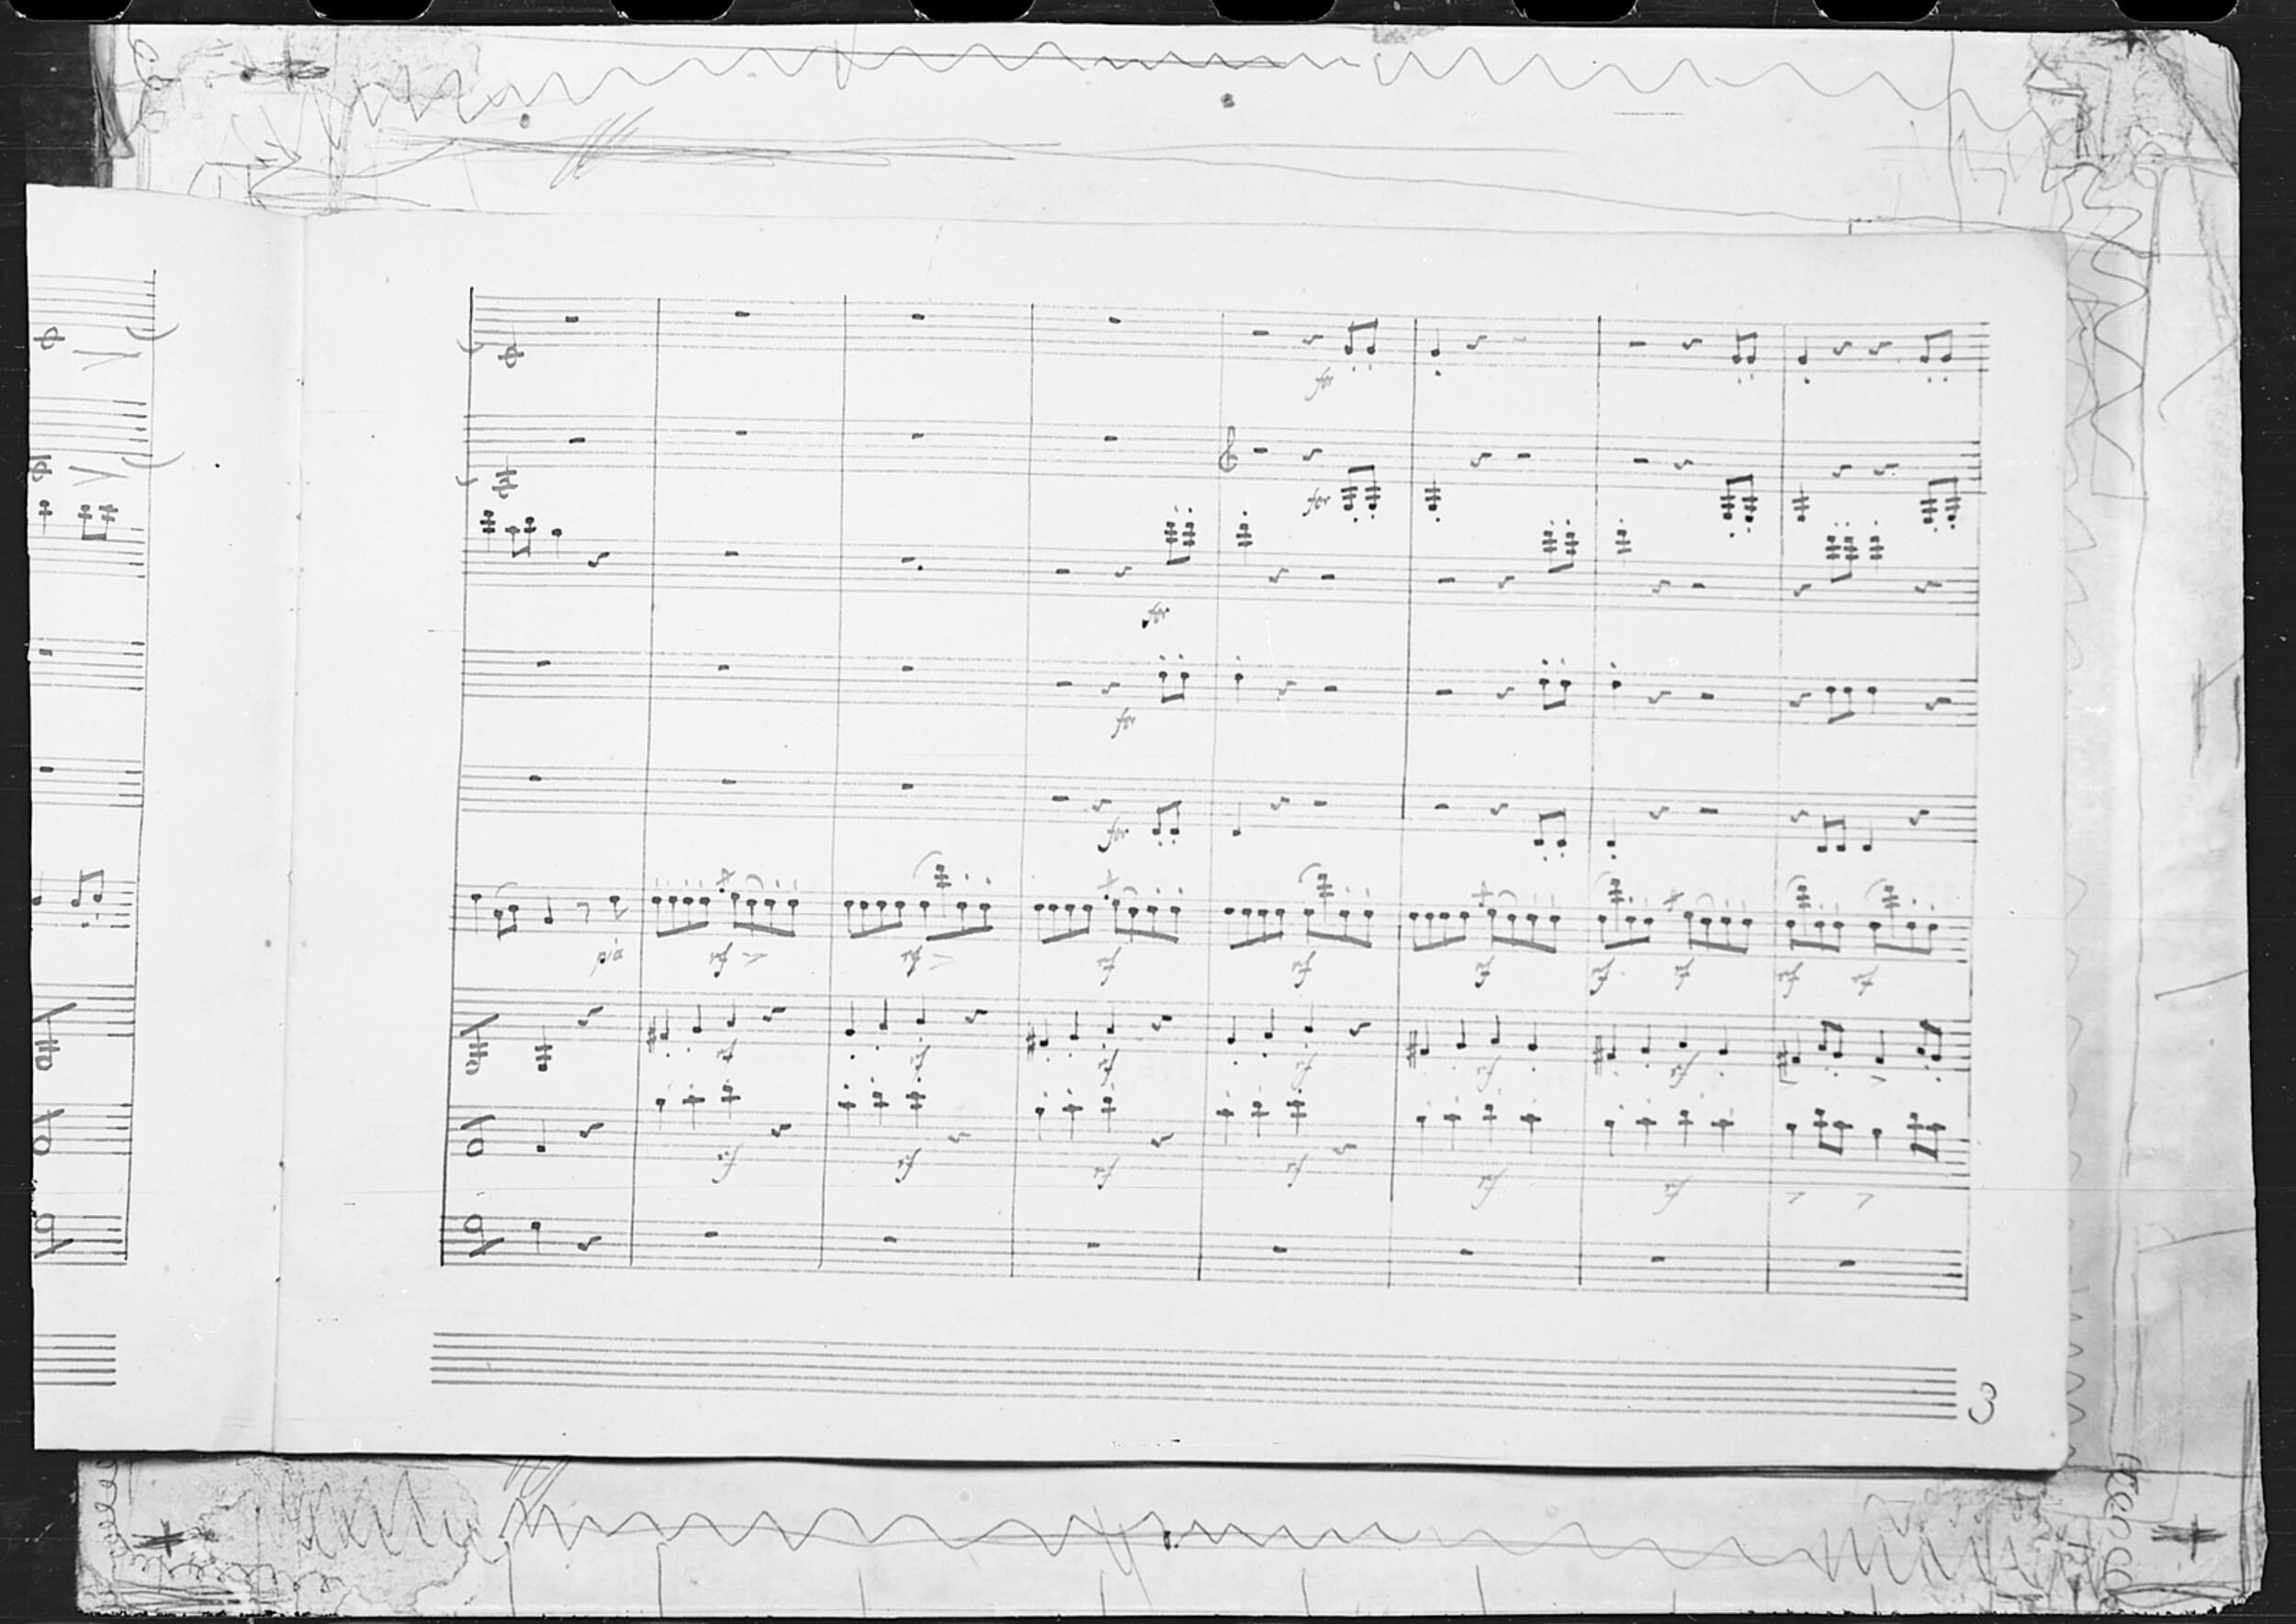 for
for
for
for
for
pia rf rf rf rf rf rf rf rf rf
rf rf rf rf rf rf
rf rf rf rf rf rf
3